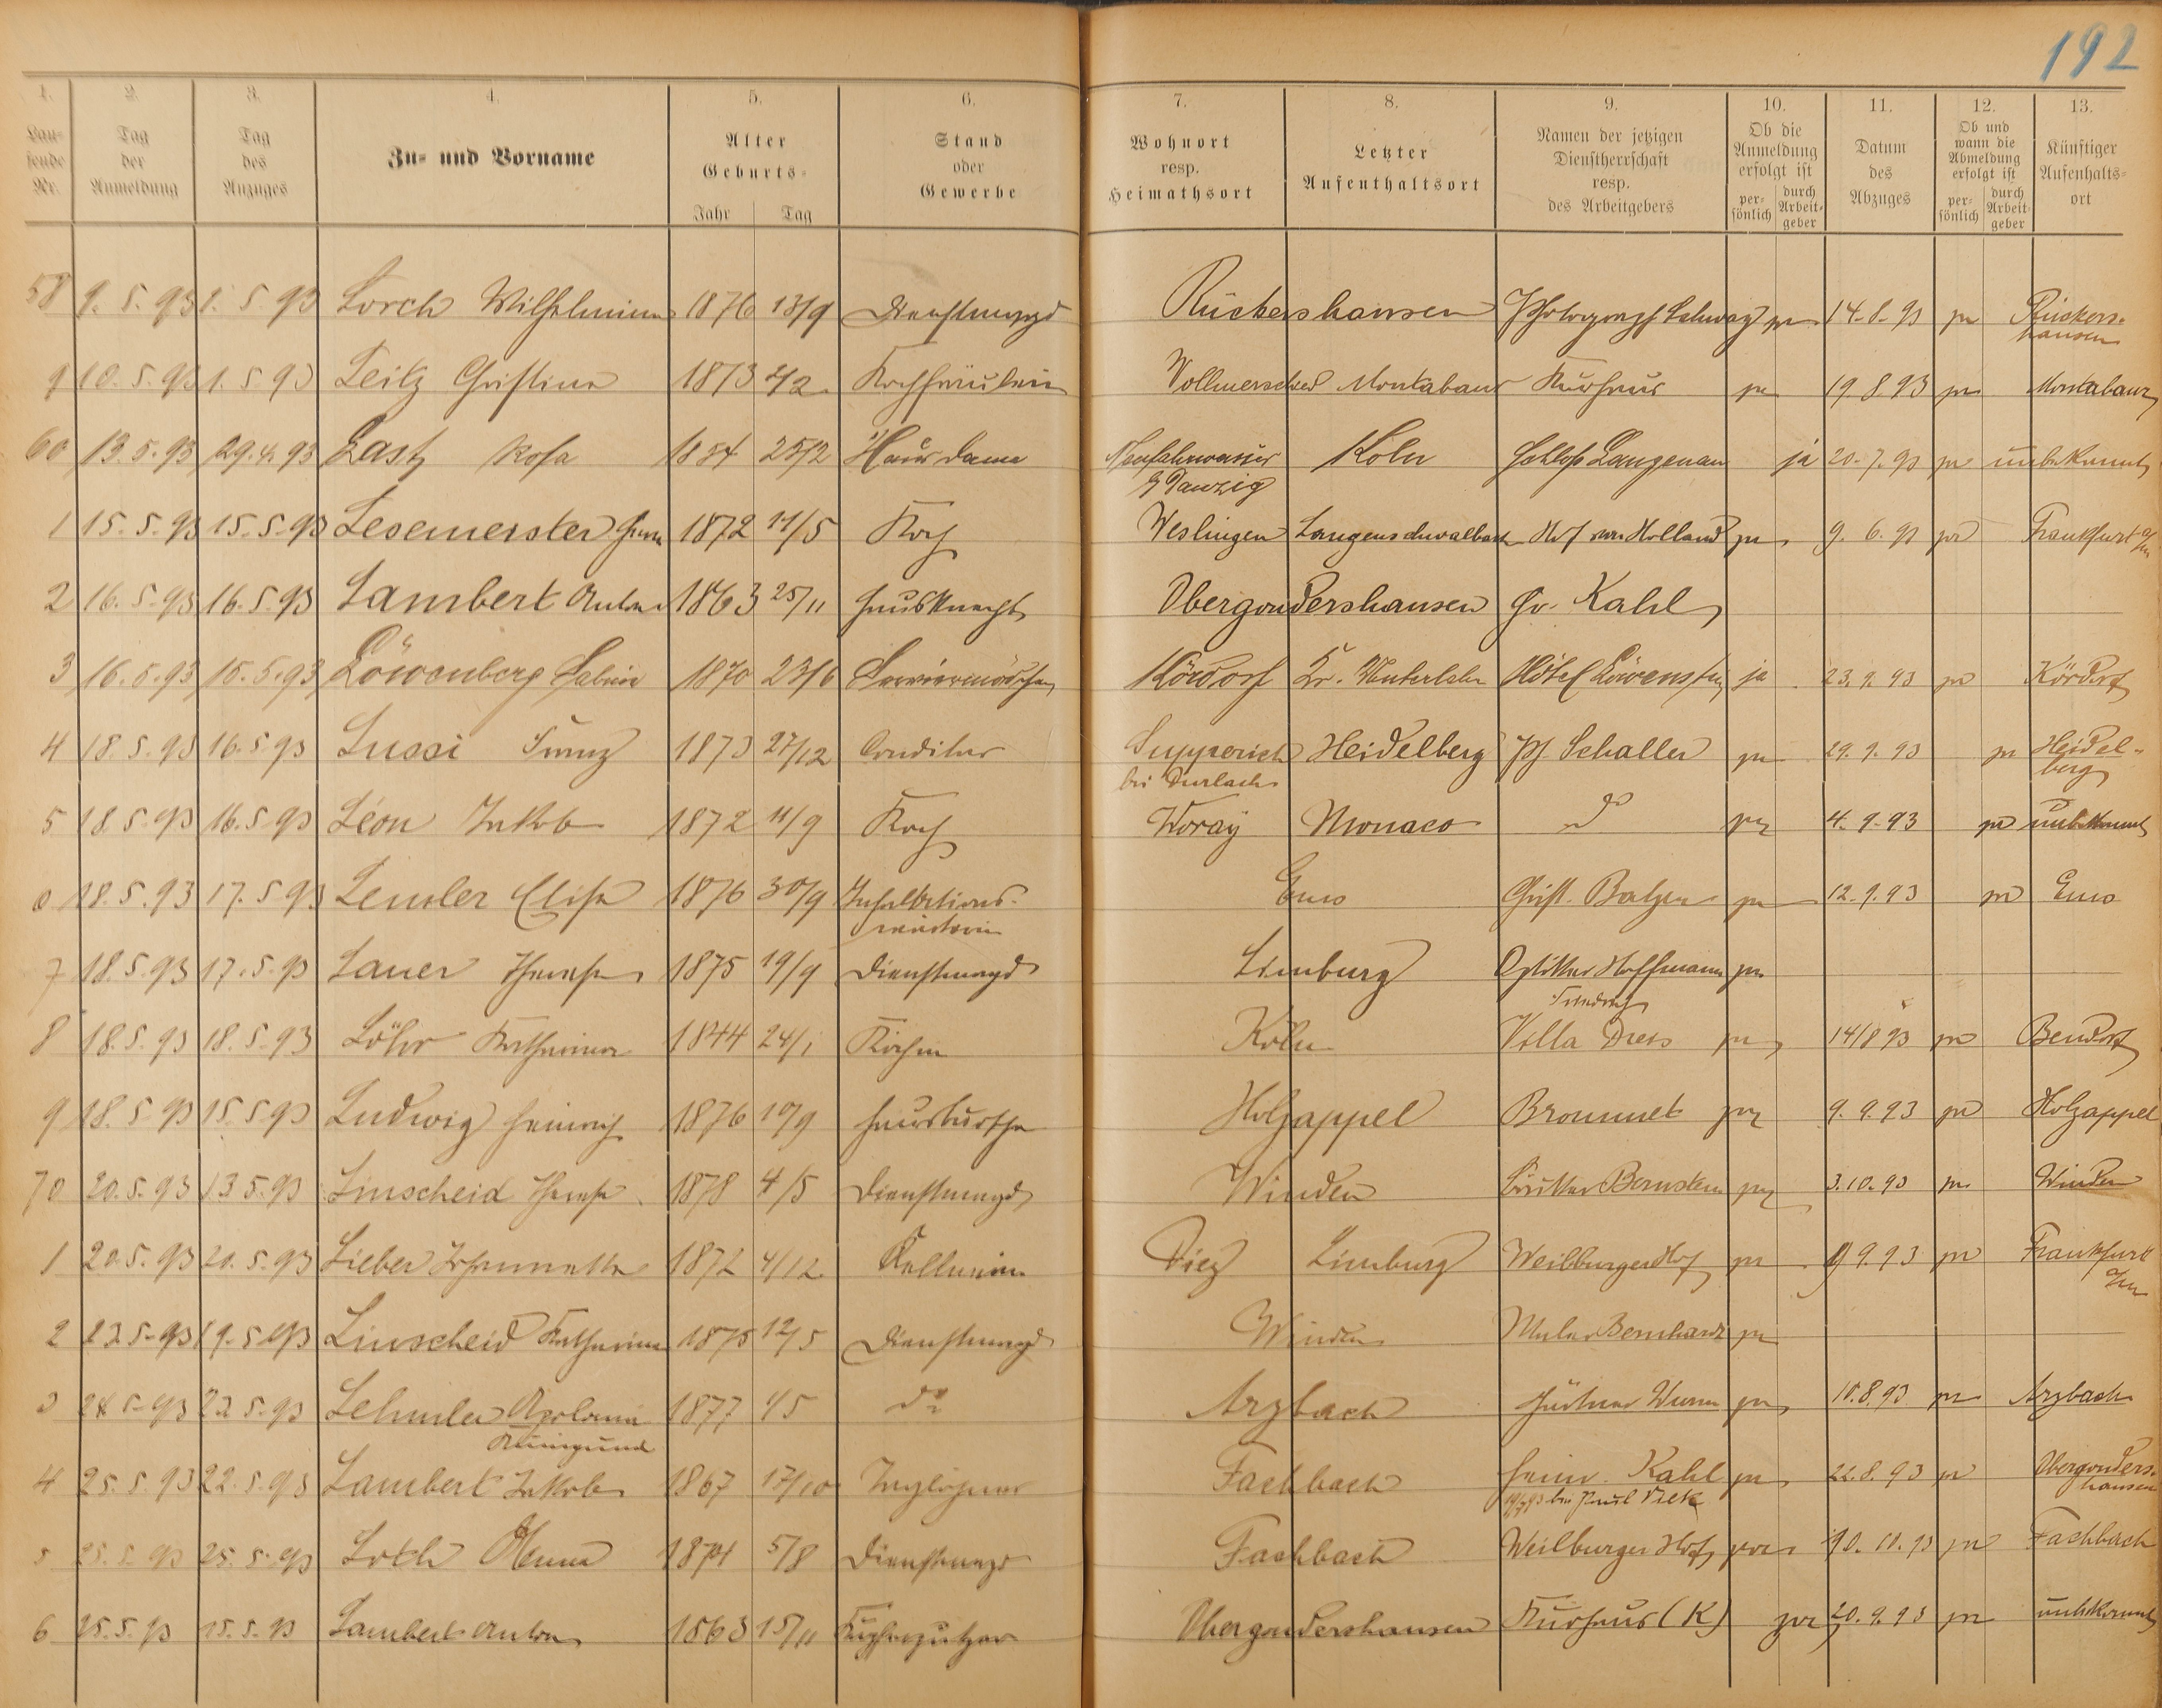 192
1. 2. 3. 4. 5. 6. 7. 8. 9. 10. 11. 12. 13.
Laufende Nr. Tag der Anmeldung Tag des Anzuges Zu- und Vorname Alter Geburts- Jahr Tag Stand oder Gewerbe Wohnort resp. Heimathsort Letzter Aufenthaltsort Namen der jetzigen Dienstherrschaft resp. des Arbeitgebers Ob die Anmeldung erfolgt ist persönlich durch Arbeitgeber Datum des Abzuges Ob und wann die Abmeldung erfolgt ist persönlich durch Arbeitgeber Künftiger Aufenhalts-ort
58 9. 5. 93 1. 5. 93 Lorch Wilhelmine 1876 13/9 Dienstmagd Rückershausen 14.8.93 Rückers-
hausen
9 10. 5. 93 1. 5. 93 Leitz Christine 1873 Kochfräulein Montabaur Kurhaus 19.8.93 Montabaur
60 13.5.93 29.4.93 Last Rosa 25/2 Hausdame Neufahrwasser Köln Schloß Langenau ja 20.7.93 unbekannt
Danzig
1 15.5.93 15.5.93 Lesemeister 1872 11/5 Koch Weslingen Langenschwalbach Hof von Holland 9. 6. 93 Frankfurt a/M
2 16.5.93 16.5.93 Lambert Anton 1863 25/11 Hausknecht Obergondershausen Kahl
3 16.5.93 15.5.93 Löwenberg Sabine 1870 23/6 Serviermädchen Kördorf Hôtel Löwenstein ja 23.9.93 Kördorf
4 18.5.93 16.5.93 Lussi Franz 1873 27/12 Conditor Supperich Heidelberg Schaller 29.9.93 Heidel-
bei Durlach berg
5 18.5.93 16.5.93 Léon Jakob 1872 11/9 Koch Woray Monaco do 4.9.93 unbekannt
18.5.93 17.5.93 Lemler Elise 1876 30/9 Inhalations- Ems Christ. Balzer 12.9.93 Ems
7 18.5.93 17.5.93 Lauer Therese 1875 19/9 Dienstmagd Limburg Optiker Hoffmann
8 18.5.93 18.5.93 Löhr Katharina 1844 24/1 Köchin Köln Villa Dres 14/8 93 Bendorf
9 18.5.93 15.5.93 Ludwig Heinrich 1876 10/9 Hausbursche Holzappel Brommet 9.9.93 Holzappel
70 20.5.93 13.5.93 Linscheid Therese 1878 4/5 Dienstmagd Winden Bernstein 3.10.93 Winden
1 20.5.93 20.5.93 Lieber Johannette 1872 4/12 Kellnerin Diez Limburg Weilburger Hof 9.9.93 Frankfurt
a/M
2 23.5.93 19.5.93 Linscheid Katharina 1875 12/5 Dienstmagd Winden Bernhard
3 24.5.93 22.5.93 Lehmler Apolonia 1877 do Arzbach 10.8.93 Arzbach
Kunigunde
4 25.5.93 22.5.93 Lambert Jakob 1867 17/10 Taglöhner Fachbach Heinr. Kahl 22.8.93 Obergonders-
hausen
bei Paul
5 25.5.93 25.5.93 Loth Anna 1874 5/8 Dienstmagd Fachbach Weilburger Hof Fachbach
6 25.5.93 15.5.93 Lambert Anton 1863 15/11 Kupferputzer Obergondershausen Kurhaus (K) 20.9.93 unbekannt